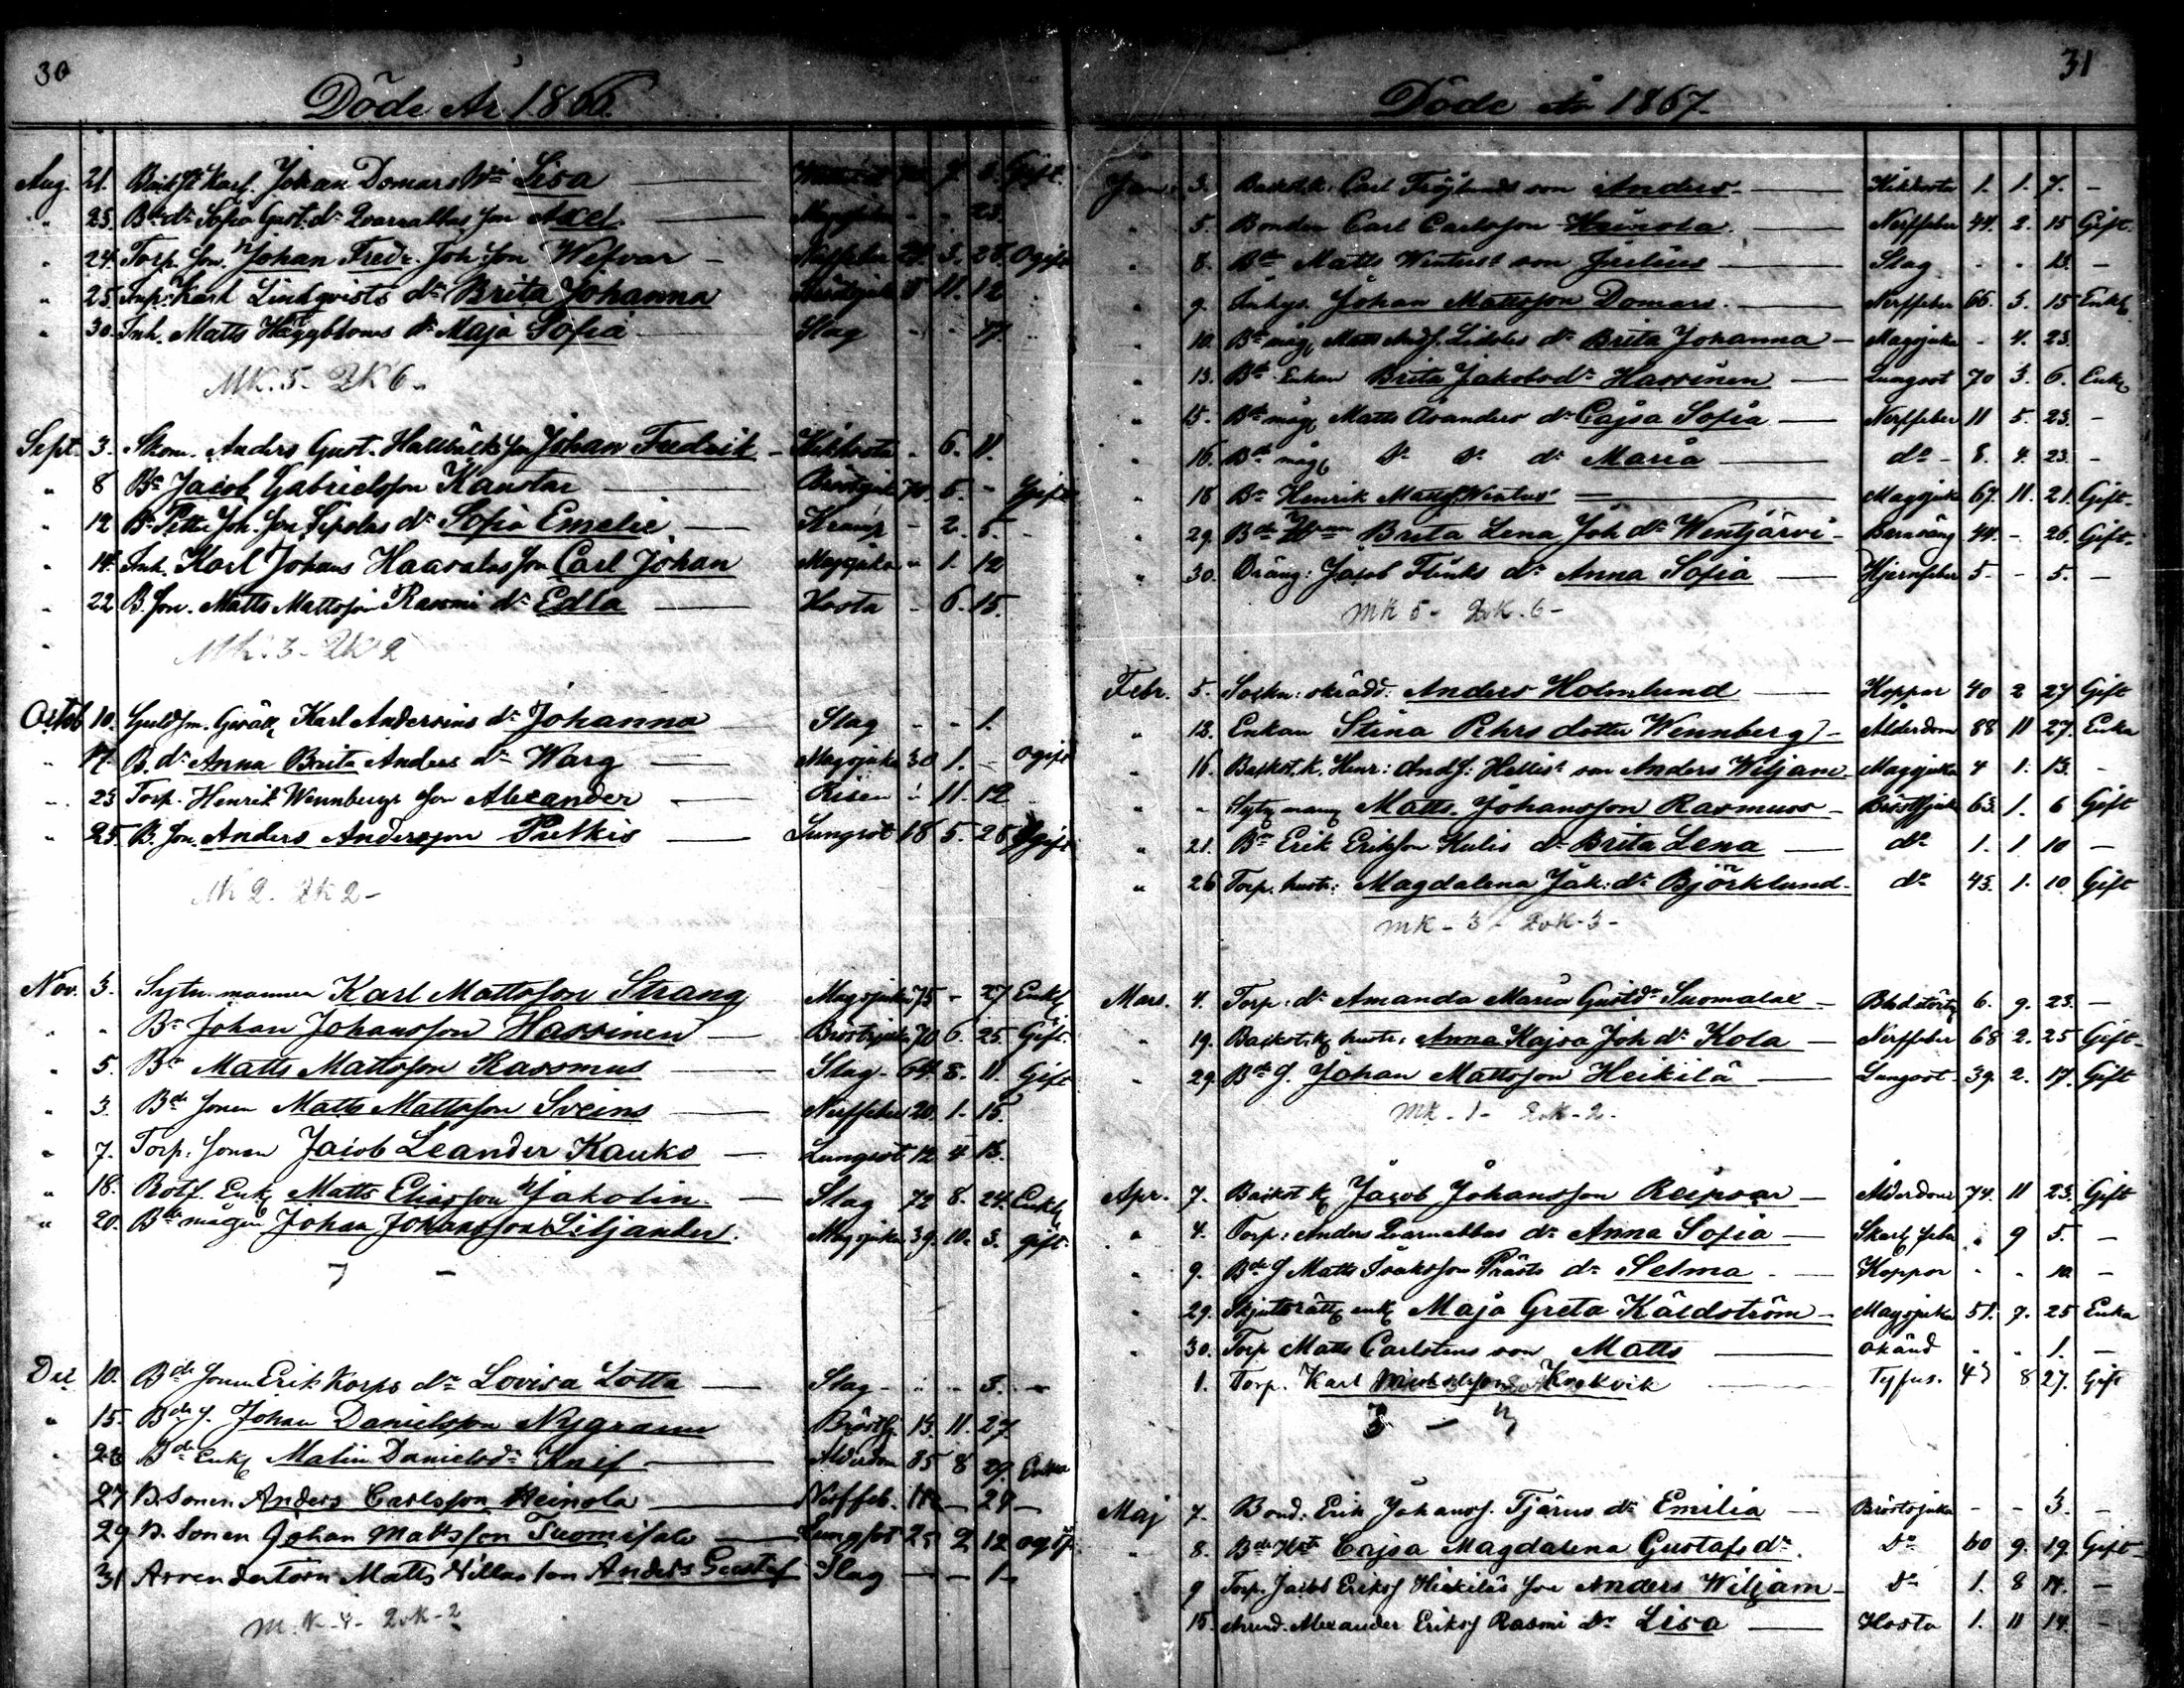 30
Döde År 1866.
Aug. 21. Johan Domars Lisa Gift.
" 23. Sofia Gust. dr Qvarnabbas son Axel 23.
" 24. Torp. Son. Johan Fredr. Joh: Son Wefvar 28. Ogift
" 25. Karl Lindqvists dr Brita Johanna 11. 12
" 30. Inh. Matts Häggbloms dr Maja Sofia Slag - - 17.
MK. 5- QK 6-
Sept. 3. Skom. Anders Gust. Hallbäcks son Johan Fredrik Kikhosta - 6. 11.
" 8 Bn Jacob Gabrielsson Kaustar Bröstsjuk 70. 5. - Gift
" 12 Bn Petter Joh. Son Sipolas dr Sofia Emelie Kramp - 2. 5. -
" 14. Inh. Karl Johans Haavalas son Carl Johan Magsjuka " 1. 12
" 22 B. Son. Matts Mattsson Rasmi dr Edla Hosta - 6. 15.
MK. 3- QK 2
Octob 10. Guldsm. Karl Andersins dr Johanna Slag - - 1.
" 17. B. dr Anna Brita Anders dr Warg Magsjuka 30 1. - ogift
" 23 Torp. Henrik Wennbergs Son Alexander Risen " 11. 12
" 25. B. Son. Anders Andersson Pulkis Lungsot 18 5. 28 Ogift
MK 2. QK 2-
Nov. 3. Sytn. mannen Karl Mattsson Strang Magsjuka 75 - 27 Enkl
" " Bn Johan Johansson Hassinen Bröstsjuka 70 6. 25. Gift.
" 5. Bn Matts Mattsson Rasmus Slag- 64. 8. 11. Gift
" 3. Bde Sonen Matts Mattsson Sveins Nerffeber 20. 1. 15.
" 7. Torp. Sonen Jacob Leander Kauko Lungsot 12 4 13.
" 18. Rotf. Enkl Matts Eliasson Jakolin Slag 72 8. 24. Enkl
" 20. Bde mågen Johan Johansson Liljander. Magsjuka 39. 10. 3. gift.
7 -
Dec 10. Bde Sonen Erik Korps dr Lovisa Lotta Slag- " - 3. -
" 15. Bde S. Johan Danielsson Nygrann Bröstsj. 13. 11. 27
" 23 Bde Enkl Malin Danielsdr Knif Ålderdom 85 8 27. Enka
27 B. Sonen Anders Carlsson Heinola Nerffeb. 18 - 29 -
29 B. Sonen Johan Mattsson Tuomisalo Lungsot 25 2 12 ogift
31 Arrendatorn Matts Villas son Anders Gustaf Slag - - 1-
M. K-4- QvK-2
31
Döde år 1867.
Jan. 3. Backst.k. Carl Fröjlunds son Anders Kikhosta 1. 1. 7. -
" 5. Bonden Carl Carlsson Heinola Nerffeber 44. 2. 15 Gift.
" 8. Bde Matts son Julius Slag - - 13. -
" 9. Inhys. Johan Mattsson Domars Nerffeber 66. 3. 15 Enkl
" 10. Bde måg Matts Andss. dr Brita Johanna Magsjuka - 4. 23.
" 13. Bde Enkan Brita Jakobsdr Hassinen Lungsot 70 3. 6. Enka
" 15. Bde måg Matts Avanders dr Cajsa Sofia Nerffeber 11 5. 23. -
" 16. Bde måg dr dr dr Maria do- 8. 4. 23. -
" 18 Bn Henrik Mattss. Magsjuka 67. 11. 21. Gift-
" 29. Bde Brita Lena Joh dr Wentjärvi Barnsäng 44. - 26. Gift-
" 30. Dräng: Jakob Flinks dr Anna Sofia Hjernfeber 5. - 5. -
MK 5- QvK. 6-
Febr. 5. Sockn: skrädd: Anders Holmlund Koppar 40 2 27 Gift
" 13. Enkan Stina Pehrs dotter Wennberg Ålderdom 88 11 27. Enka
" 16. Backst.k. Henr: Ands: son Anders Wiljam Magsjuka 4 1. 13. -
" " Sytn mann Matts Johansson Rasmuss Bröstsjuka 63. 1. 6 Gift
" 21. Bn Erik Eriksson Kulis dr Brita Lena do 1. 1 10 -
" 26 Torp. hustr: Magdalena Jak: dr Björklund do 43. 1. 10. Gift
MK- 3- QvK-3-
Mars. 4. Torp: dr Amanda Maria Gustdr Suomalae 6. 9. 23. -
" 19. Backst.k hustr: Anna Kajsa Joh dr Kola Nerffeber 68 2. 25 Gift-
" 29. Bde S. Johan Mattsson Heikilä Lungsot- 39. 2. 17. Gift
MK-1- QvK-2-
Apr. 7. Backst.k Jacob Johansson Reipsar Ålderdom 74. 11 23. Gift
" 4. Torp: Anders Qvarnabbas dr Anna Sofia Skarl. feber " 9 5. -
" 9. Bde S Matts Isaksson Prästs dr Selma Koppor - - 10 -
" 29. Skjutsrätt enk Maja Greta Käldström Magsjuka 51. 7. 25 Enka
" 30. Torp Matts Carlstens son Matts okänd " " 1. -
1. Torp. Karl Krokvik Tyfus. 43 8 27. Gift
3 - 3
Maj 7. Bond: Erik Johanss. Tjärus dr Emilia Bröstsjuka - - 3. -
" 8. Bde Hstr Cajsa Magdalena Gustafs dr. Do 60 9. 19. Gift-
9 Torp. Jacob Erikss Heikiläs son Anders Wiljam Do 1. 8 14. -
15. Alexander Erikss Rasmi dr Lisa Hosta 1. 11 14. -